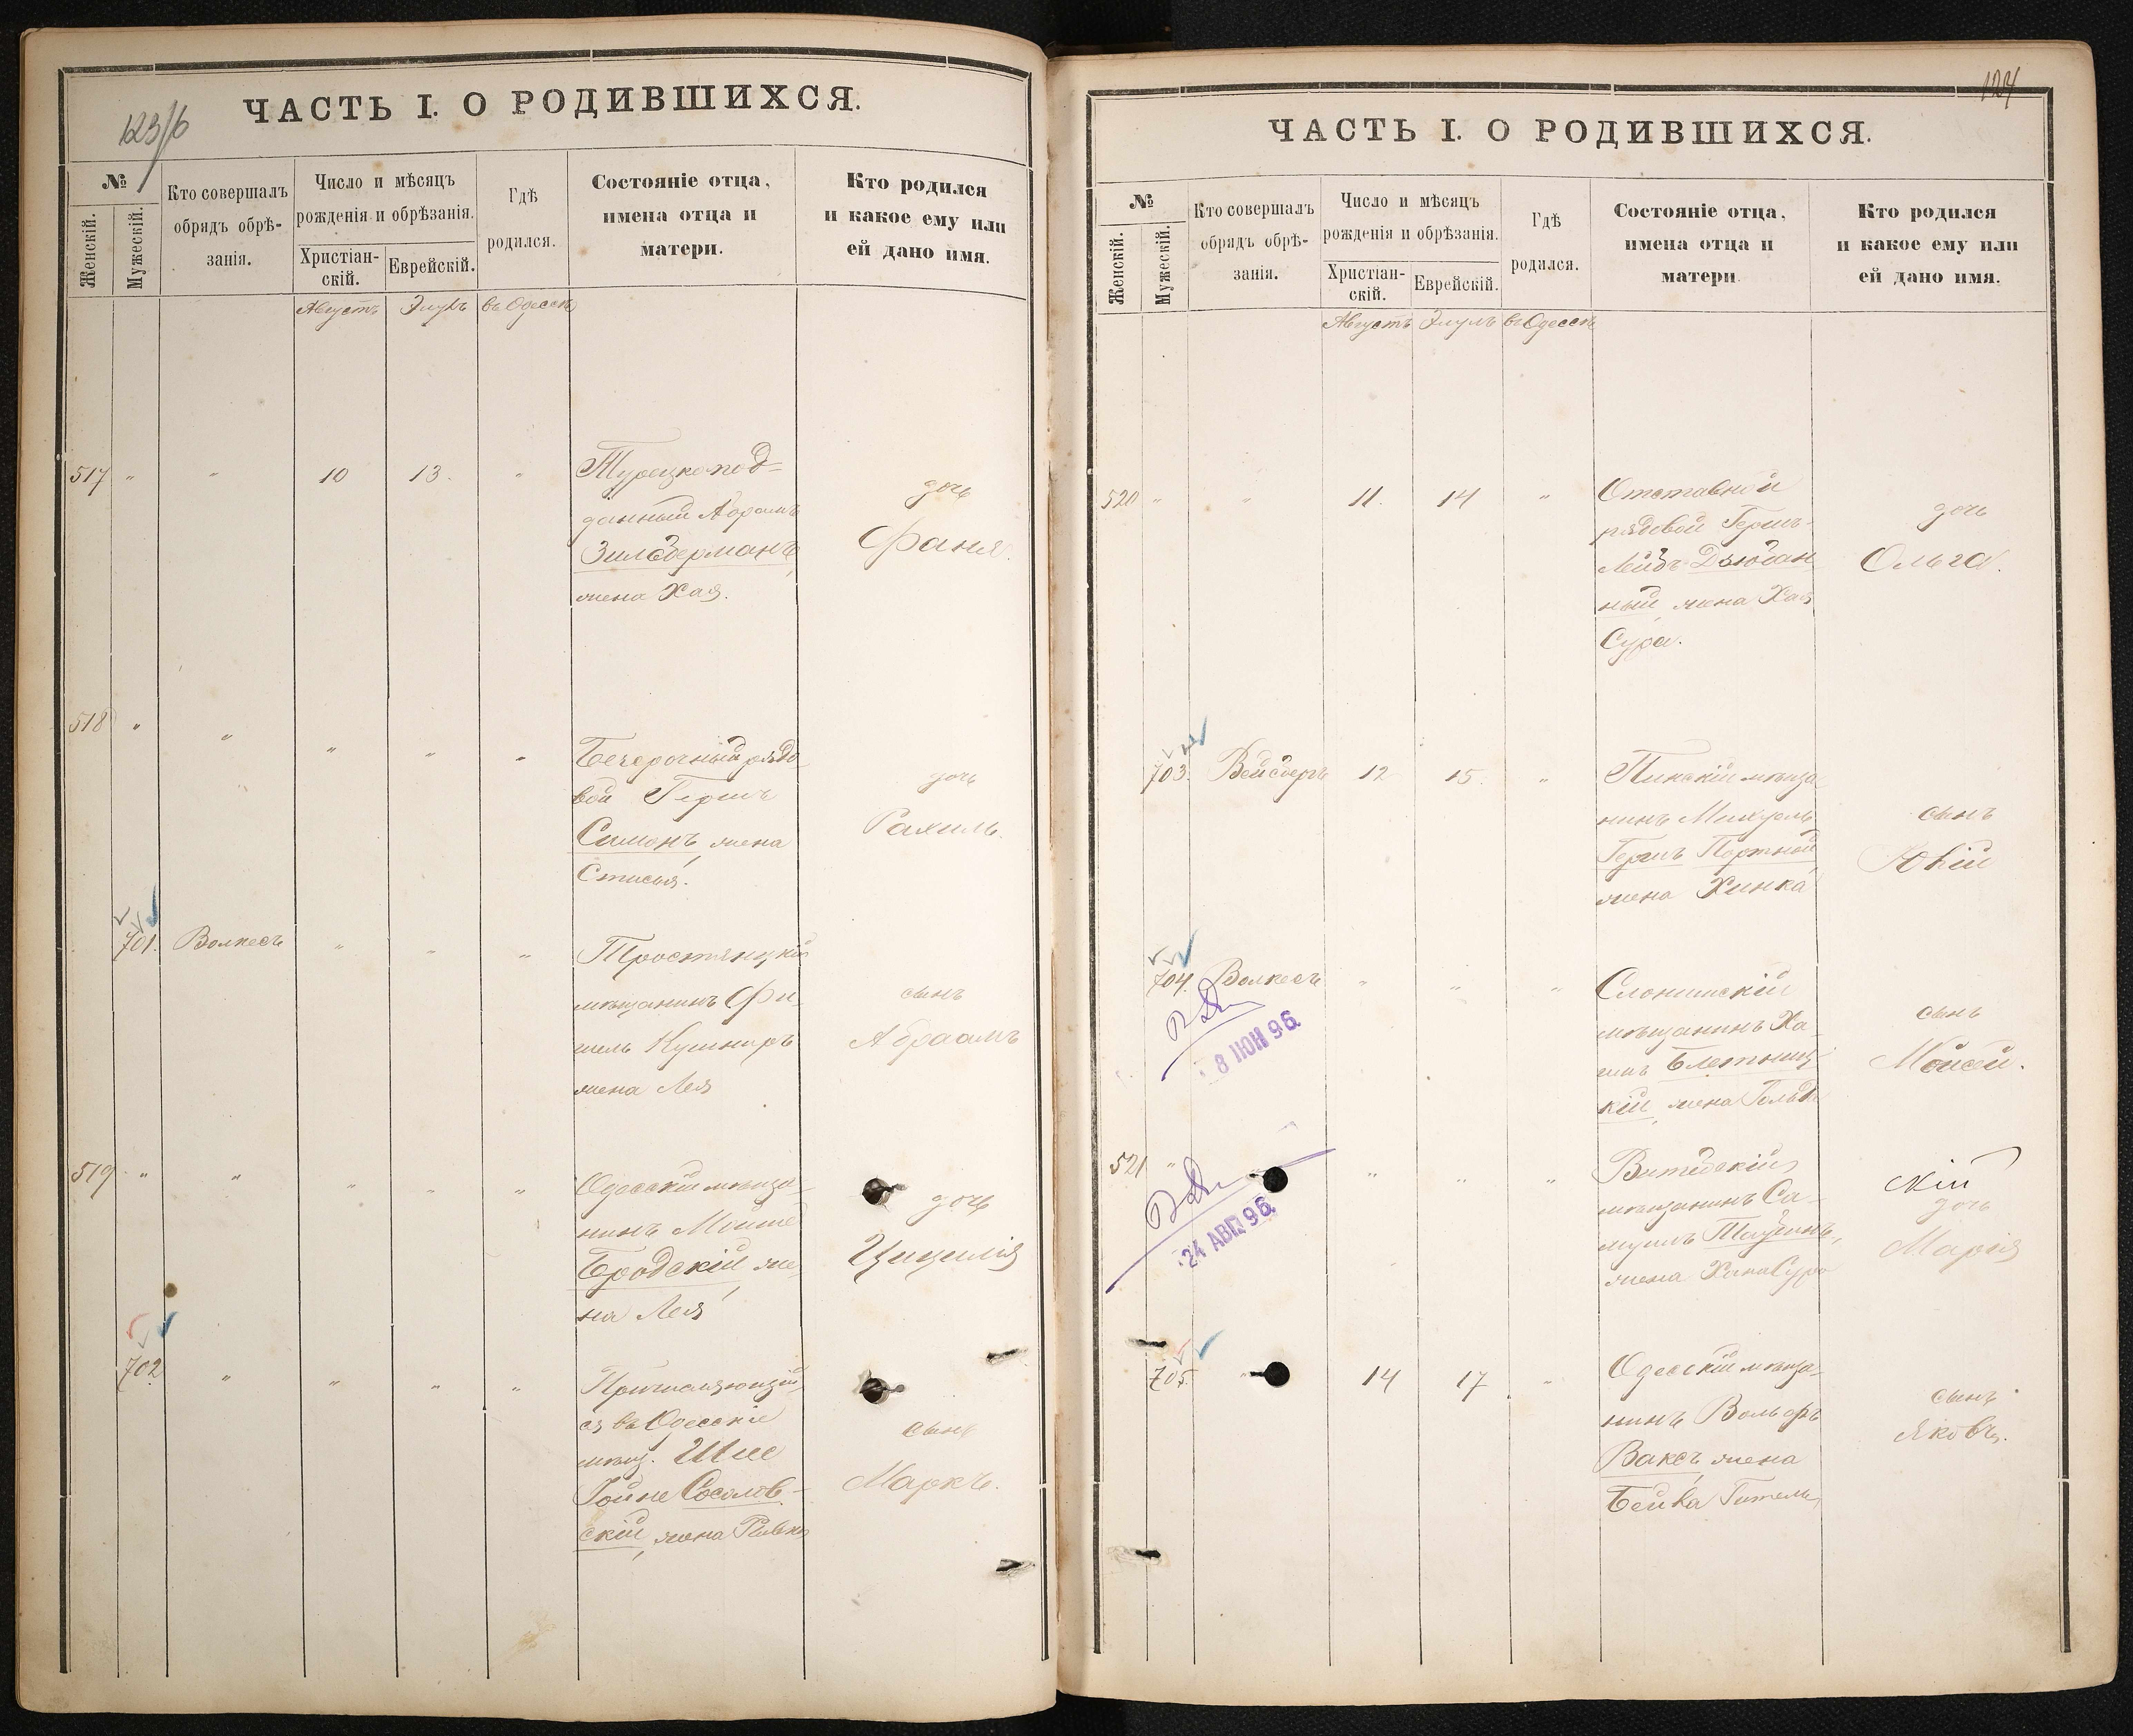 123/6
ЧАСТЬ I. О РОДИВШИХСЯ.
№
Женскій.
Мужескій.
Кто совершалъ
обрядъ обрѣ-
занія.
Число и мѣсяцъ
рожденія и обрѣзанія.
Христіан-
скій.
Еврейскій.
Гдѣ
родился.
Состояніе отца,
имена отца и
матери.
Кто родился
и какое ему или
ей дано имя.
Августъ Элулъ въ Одессѣ
517 " " 10 13. "
Турецкопод-
данный Абрамъ
Зильберманъ,
жена Хая.
дочь
Фаня.
518 " " " " "
Безсрочный рядо-
вой Гершъ
Симонъ, жена
дочь
Рахиль.
701. Волкесъ " " "
Тростянецкій
мѣщанинъ Фи-
шель Кушниръ
жена Лея
сынъ
Абраамъ
519 " " " " "
Одесскій мѣща-
нинъ
Бродскій, же-
на Лея
дочь
Цицилія
702 " " " "
Причисляющій-
ся въ Одесскіе
мѣщ. Шие
Тойне Соколов-
скій, жена Ривка
сынъ
Маркъ.
124
ЧАСТЬ I. О РОДИВШИХСЯ.
№
Женскій.
Мужескій.
Кто совершалъ
обрядъ обрѣ-
занія.
Число и мѣсяцъ
рожденія и обрѣзанія.
Христіан-
скій.
Еврейскій.
Гдѣ
родился.
Состояніе отца,
имена отца и
матери.
Кто родился
и какое ему или
ей дано имя.
Августъ Элулъ въ Одессѣ
520 " " 11. 14 "
Отставной
рядовой Гершъ-
Лейбъ
ный, жена Хая
Сура.
дочь
Ольга.
703. Вейсбергъ 12 15. "
Пинскій мѣща-
нинъ
Гершъ Портной
жена Хинка
сынъ
704. Волкесъ " " "
8 ІЮН 96
Слонимскій
мѣщанинъ Ха-
имъ Блетниц-
кій, жена Гольда
сынъ
Мойсей.
521 " " " "
24 АВГ 96
Витебскій
мѣщанинъ Са-
муилъ
жена Хана Сура
скій
дочь
Марія
705. " 14 17 "
Одесскій мѣща-
нинъ Вольфъ
Ваксъ, жена
Бейла Гитель
сынъ
Яковъ.